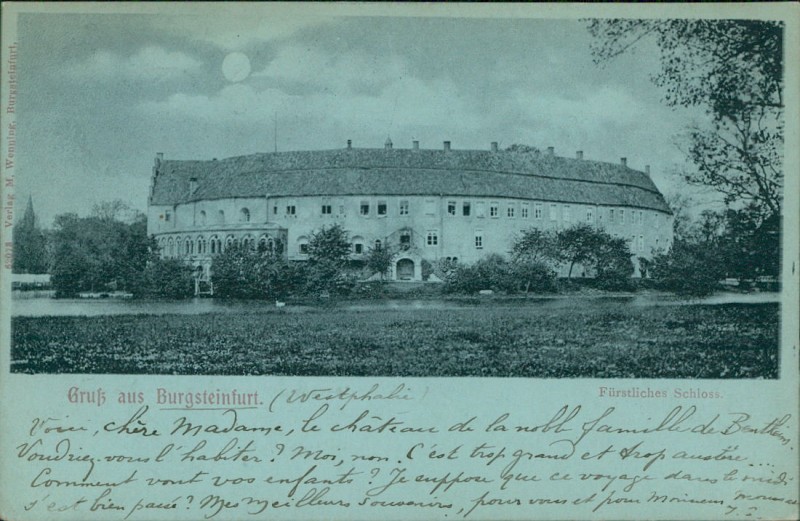 Verlag M. Wenning, Burgsteinfurt.
Gruß aus Burgsteinfurt. (Westphalie)
Fürstliches Schloss.
Voici, chère Madame, le château de la noble famille de Bentheim.
Voudriez-vous l'habiter? Moi, non. C'est trop grand et trop austère...
Comment vont vos enfants? Je suppose que ce voyage dans le midi
s'est bien passé? Mes meilleurs souvenirs, pour vous et pour Monsieur